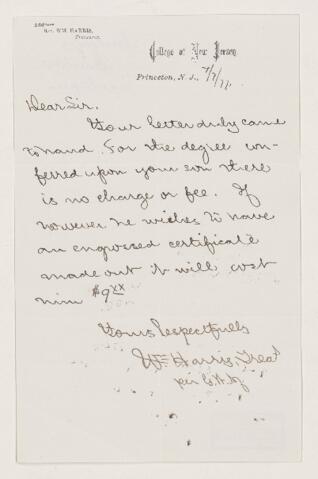 Address
Rev. WM. HARRIS,
Treasurer.
College of New Jersey
Princeton, N. J., 7/7/77.
Dear Sir.
Your letter duly came
to hand. For the degree con-
ferred upon your son there
is no charge or fee. If
however he wishes to have
an engrossed certificate
made out it will cost
him $9xx
Yours respectfully
Wm Harris, Treas
per